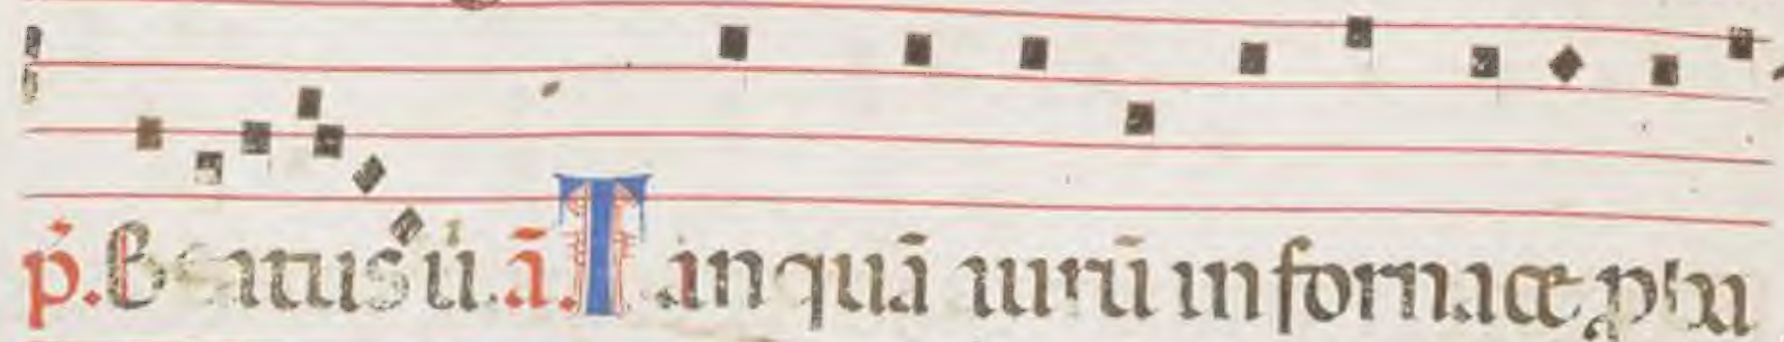 p̄. Beatus ū. ā. Tanquā aurū in fornace ꝓbau